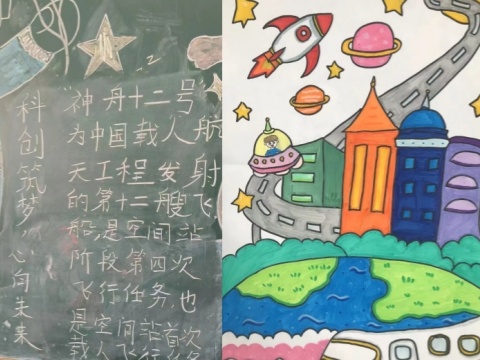 科创筑梦，心向未来
“神舟十二号”
为中国载人航
天工程发射
的第十二艘飞
船，是空间站
阶段第四次
飞行任务，也
是空间站首次
载人飞行